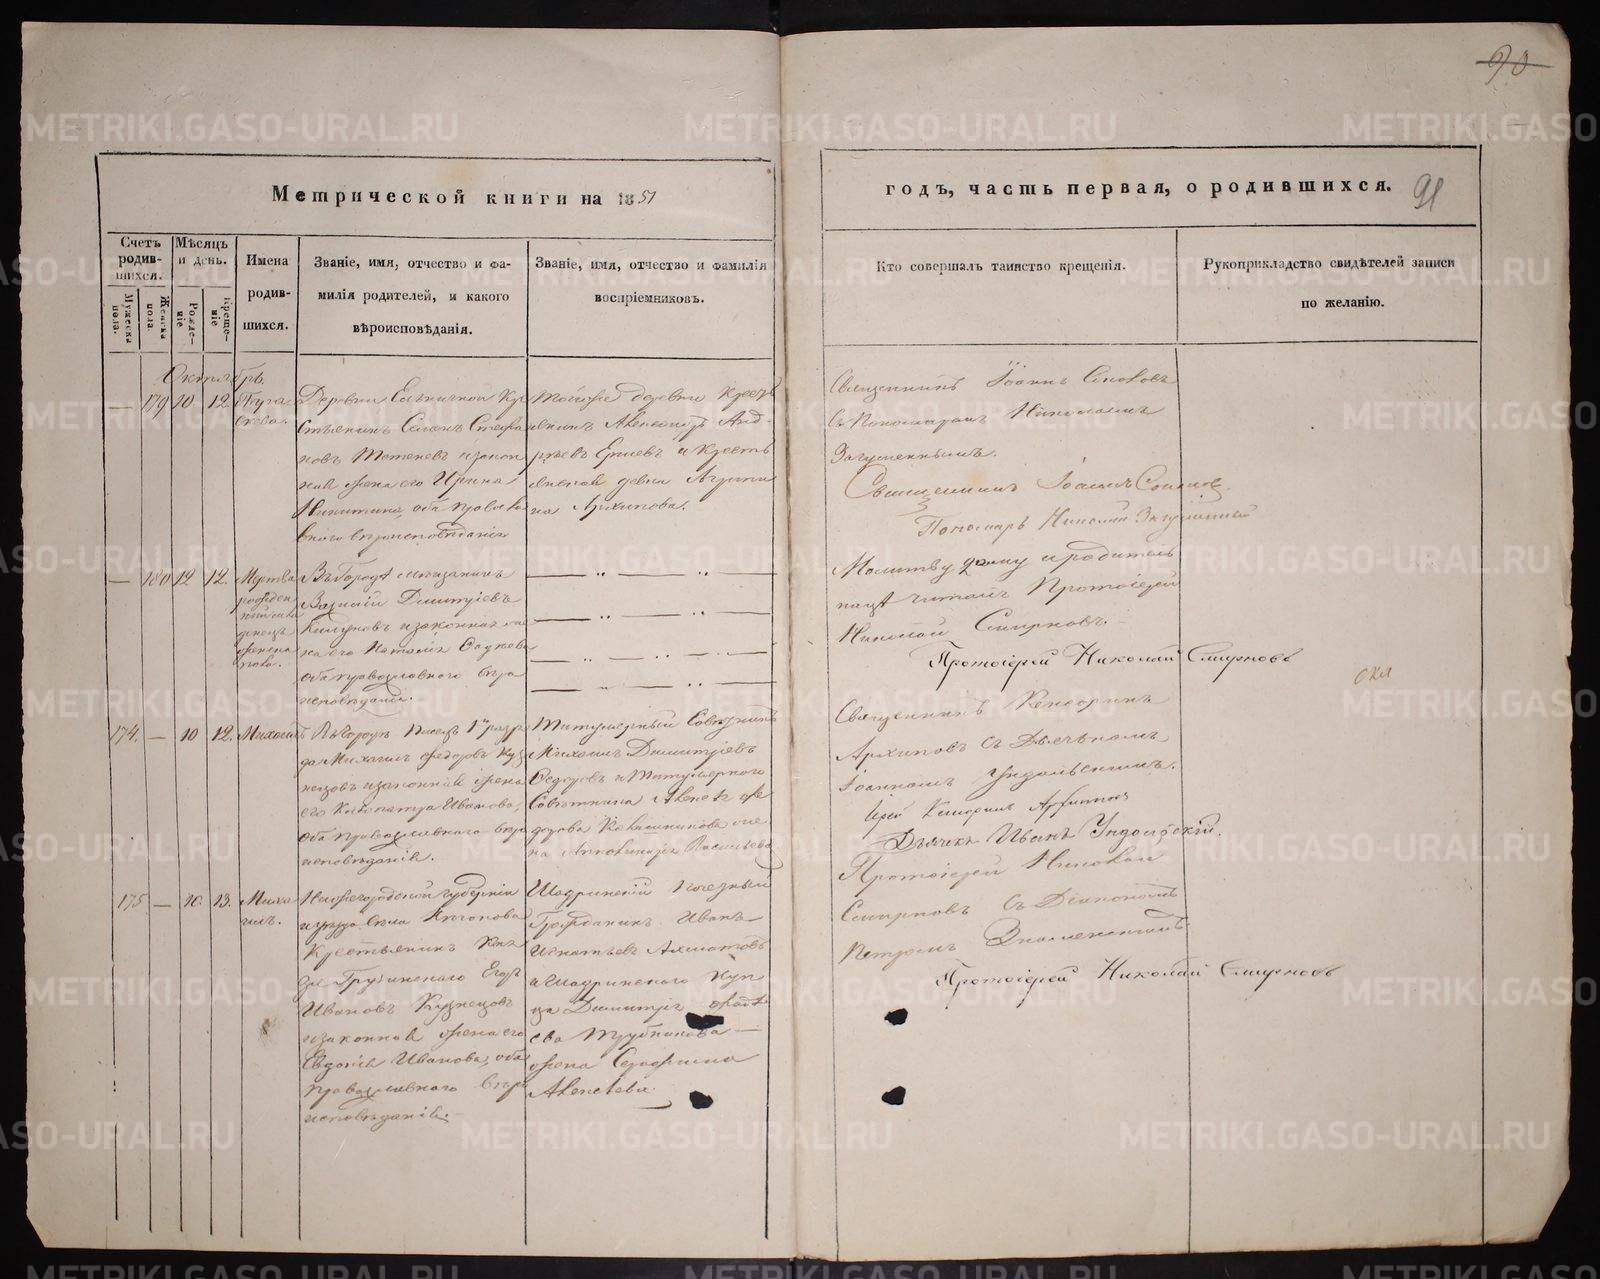 90
Метрической книги на 1851
годъ, часть первая, о родившихся. 91
Счетъ родив-шихся.
Мужеска пола.
Женска пола.
Мѣсяцъ и день.
Рожде-ніе
Креще-ніе
Имена родив-шихся.
Званіе, имя, отчество и фа-
милія родителей, и какого
вѣроисповѣданія.
Званіе, имя, отчество и фамилія
воспріемниковъ.
Кто совершалъ таинство крещенія.
Рукоприкладство свидѣтелей записи
по желанію.
Октябрь.
— 179 10 12
Пара-
скева.
Деревни Кре
стьянинъ Стефа
новъ и закон
ная жена его Ирина
Никитина, оба правосла
внаго вѣроисповѣданія
Тойже деревни крест
янинъ Александръ Анд-
реевъ и кресть
янская девка Агрипи
на Архипова.
Священникъ Іоаннъ
съ Пономаремъ Николаемъ
Священникъ Іоаннъ
Пономарь Николай
— 180 12 12.
Мертво
рожден
ный мла
денецъ
женска
пола.
Въ Городѣ мѣщанинъ
Василій Димитріевъ
и законная же
на его Наталія
оба православнаго вѣро
исповѣданія.
Молитву дому и родитель
ницѣ читалъ Протоіерей
Николай Смирновъ.
Протоіерей Николай Смирновъ
174. — 10 12.
Михаилъ
Въ Городѣ Писецъ 1го разря
да Михаилъ Федоровъ Куз
нецовъ и законная жена
его Клеопатра Иванова,
оба православнаго вѣро
исповѣданія.
Титулярный Совѣтникъ
Михаилъ Димитріевъ
Федоровъ и Титулярнаго
Совѣтника Алексѣя Фе
дорова же
на Аполинарія Васильева
Священникъ Кенсоринъ
Архиповъ съ Дьячкомъ
Іоанномъ Ундольскимъ.
Іерей Кенсоринъ Архиповъ
Дьячекъ Иванъ Ундольскій.
175 — 10. 13.
Миха
илъ.
Нижегородской губерніи
и уѣзда села
Крестьянинъ Кня
зя Грузинскаго Егоръ
Ивановъ Кузнецовъ
и законная жена его
Евдокія Иванова, оба
православнаго вѣро
исповѣданія.
Шадринскій почетный
Гражданинъ Иванъ
Игнатьевъ
и Шадринскаго Куп
ца Димитрія
ева Трубникова —
жена Серафима
Алексѣева.
Протоіерей Николай
Смирновъ съ Діакономъ
Петромъ Знаменскимъ
Протоіерей Николай Смирновъ
METRIKI.GASO-URAL.RU